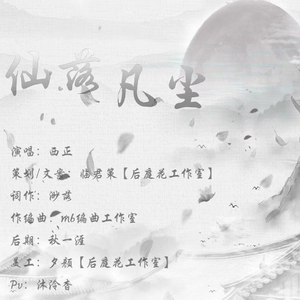 仙落凡尘
演唱：西正
策划/文案：临君策【后庭花工作室】
词作：渺落
作编曲：mb编曲工作室
后期：秋一涯
美工：夕颜【后庭花工作室】
Pv：沐泠香